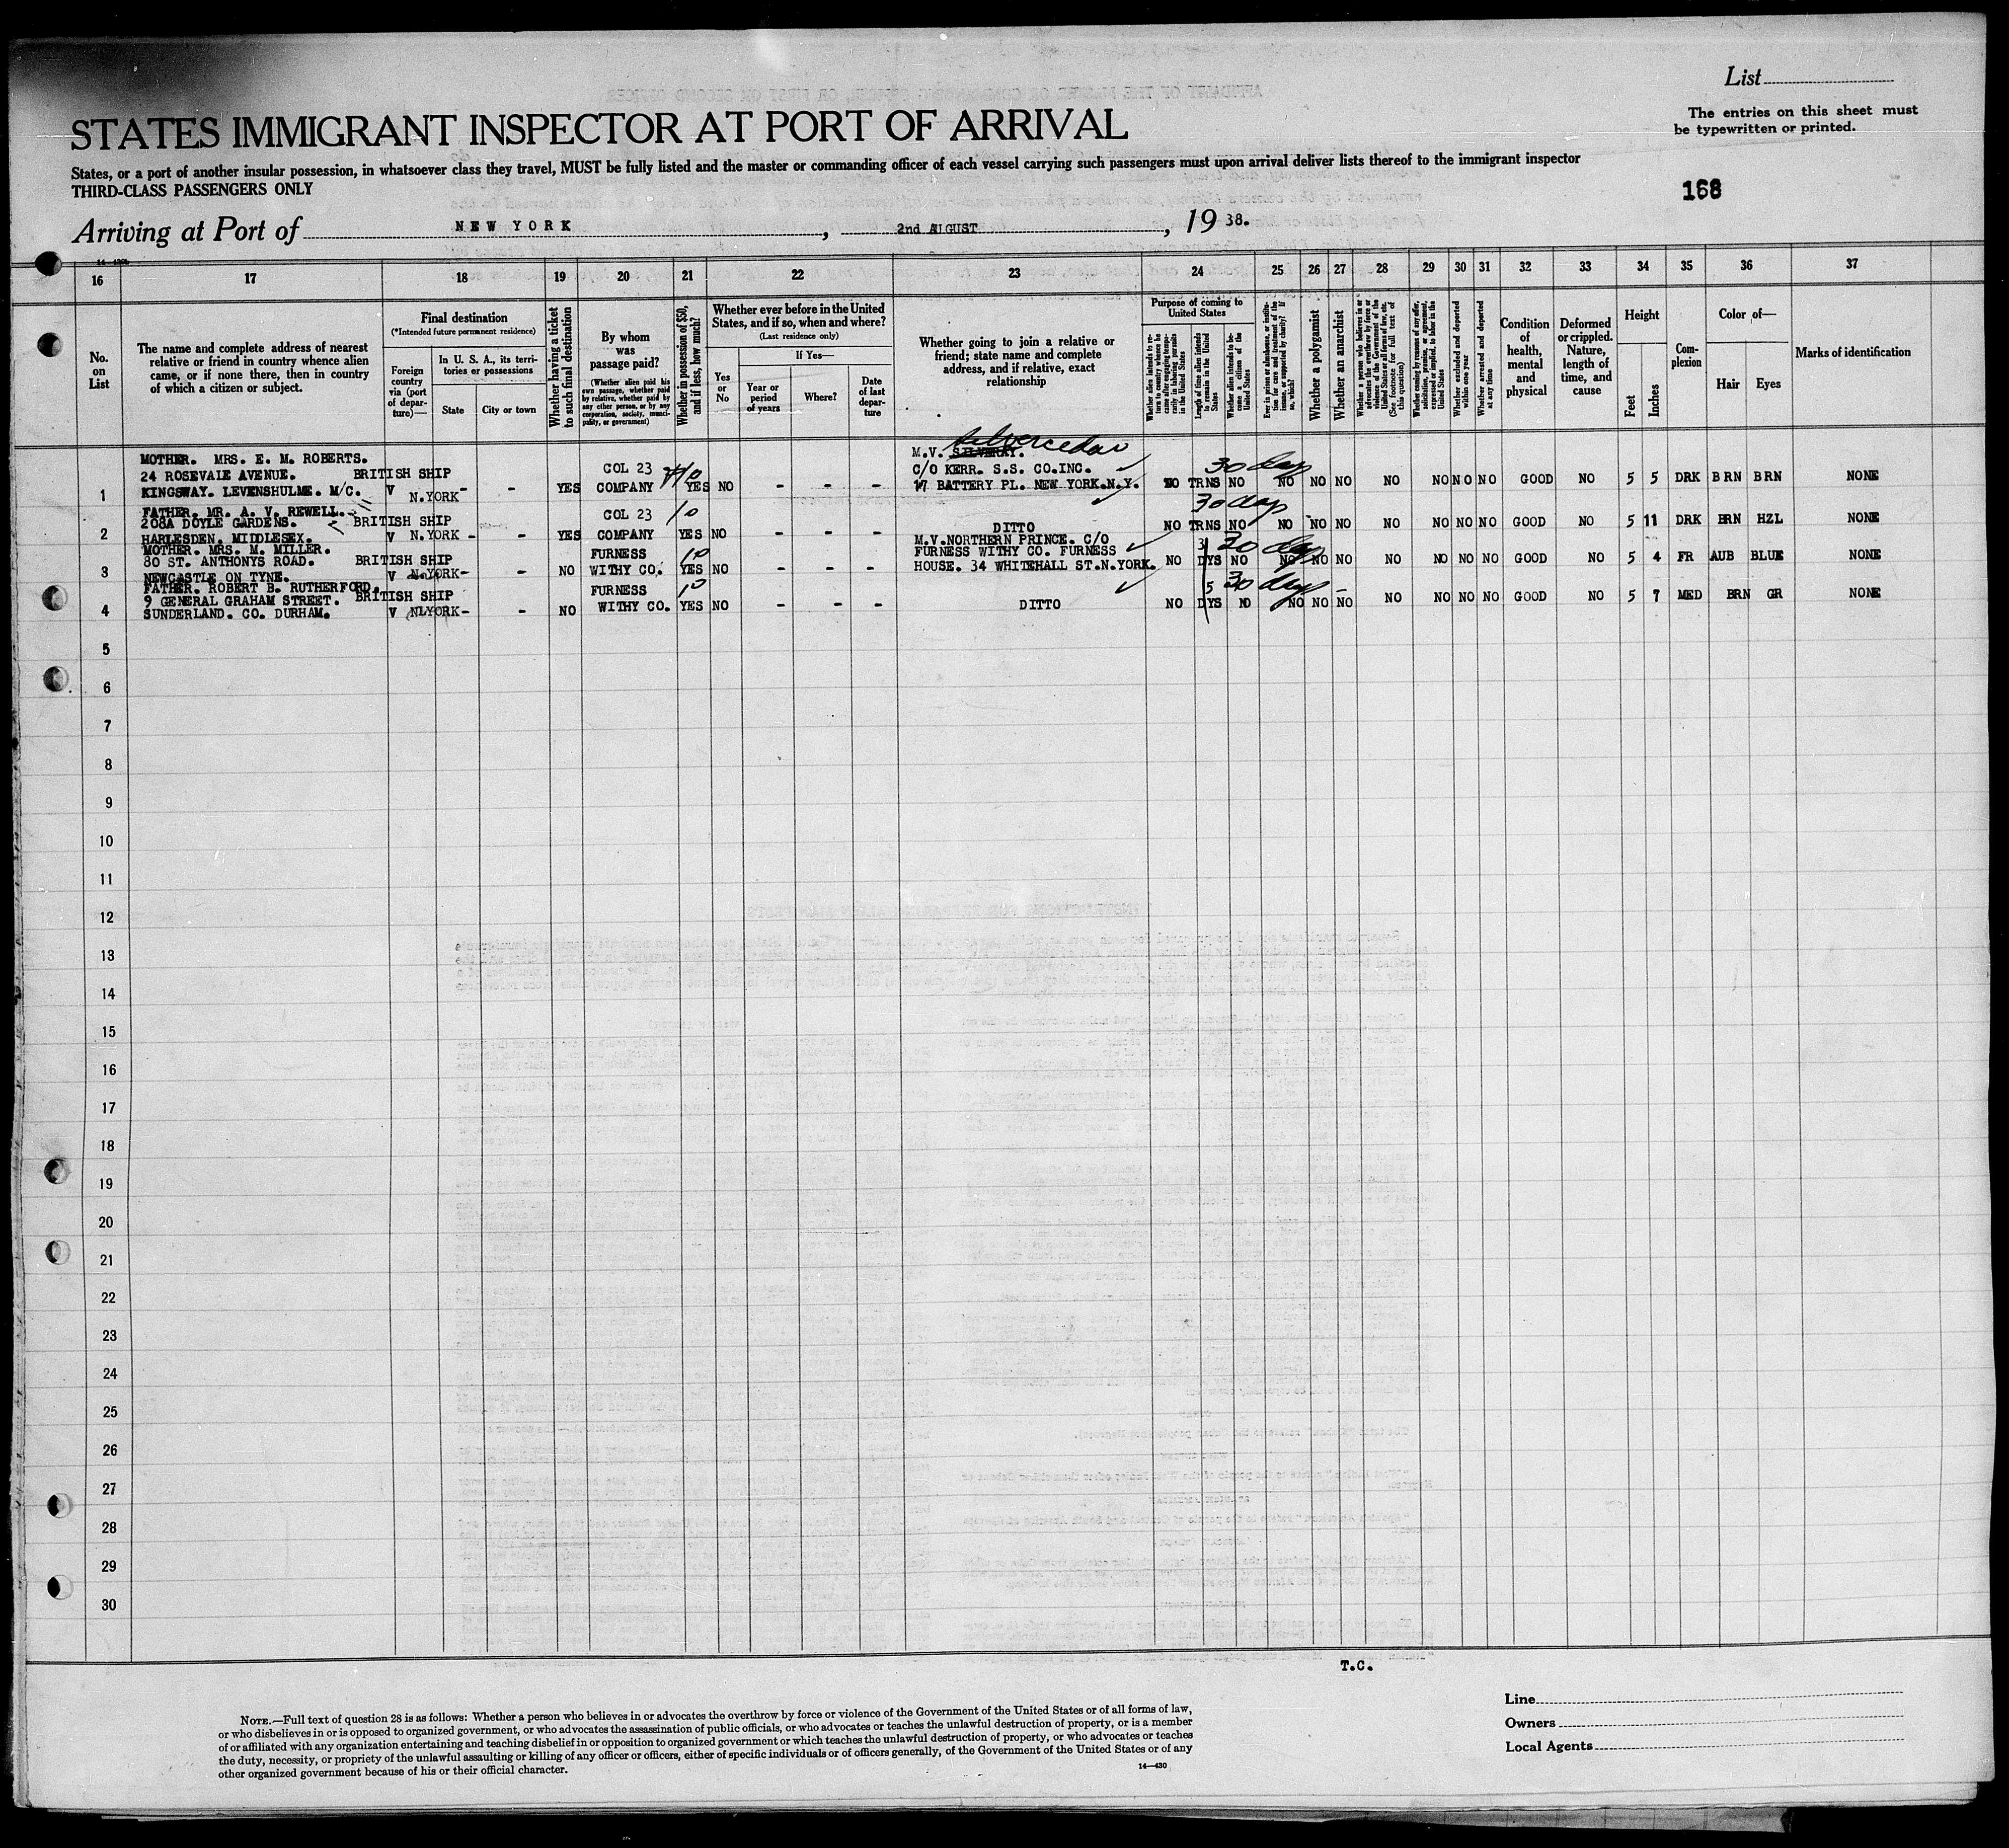 List
The entries on this sheet must
be typewritten or printed.
STATES IMMIGRANT INSPECTOR AT PORT OF ARRIVAL
States, or a port of another insular possession, in whatsoever class they travel, MUST be fully listed and the master or commanding officer of each vessel carrying such passengers must upon arrival deliver lists thereof to the immigrant inspector
THIRD-CLASS PASSENGERS ONLY
168
Arriving at Port of NEW YORK, 2nd AUGUST, 19 38.
16 17 18 19 20 21 22 23 24 25 26 27 28 29 30 31 32 33 34 35 36 37
No. on List
The name and complete address of nearest
relative or friend in country whence alien
came, or if none there, then in country
of which a citizen or subject.
Final destination
(*Intended future permanent residence)
Foreign country via (port of departure)—
In U. S. A., its territories or possessions
State
City or town
Whether having a ticket to such final destination
By whom was passage paid?
(Whether alien paid his own passage, whether paid by relative, whether paid by any other person, or by any corporation, society, municipality, or government)
Whether in possession of $50, and if less, how much?
Whether ever before in the United
States, and if so, when and where?
(Last residence only)
Yes or No
If Yes—
Year or period of years
Where?
Date of last departure
Whether going to join a relative or
friend; state name and complete
address, and if relative, exact
relationship
Purpose of coming to United States
Whether alien intends to return to country whence he came after engaging temporarily in laboring pursuits in the United States
Length of time alien intends to remain in the United States
Whether alien intends to become a citizen of the United States
Ever in prison or almshouse, or institution for care and treatment of the insane, or supported by charity? If so, which?
Whether a polygamist
Whether an anarchist
Whether a person who believes in or advocates the overthrow by force or violence of the Government of the United States or all forms of law, etc. (See footnote for full text of this question)
Whether coming by reason of any offer, solicitation, promise, or agreement, expressed or implied, to labor in the United States
Whether excluded and deported within one year
Whether arrested and deported at any time
Condition of health, mental and physical
Deformed or crippled. Nature, length of time, and cause
Height
Feet
Inches
Complexion
Color of—
Hair
Eyes
Marks of identification
MOTHER. MRS. E. M. ROBERTS.
24 ROSEVALE AVENUE. BRITISH SHIP COL 23 10 M.V. SILVERAY. Silvercedar
C/O KERR. S.S. CO.INC. 30 days
1 KINGSWAY. LEVENSHULME. M/C. V N.YORK - - YES COMPANY YES NO - - - 17 BATTERY PL. NEW YORK.N.Y. NO TRNS NO NO NO NO NO NO NO NO GOOD NO 5 5 DRK BRN BRN NONE
FATHER. MR. A. V. REWELL.
208A DOYLE GARDENS. BRITISH SHIP COL 23 10 30 days
2 HARLESDEN. MIDDLESEX. V N.YORK - - YES COMPANY YES NO - - - DITTO NO TRNS NO NO NO NO NO NO NO NO GOOD NO 5 11 DRK BRN HZL NONE
MOTHER. MRS. M. MILLER. M.V.NORTHERN PRINCE. C/O
30 ST. ANTHONYS ROAD. BRITISH SHIP FURNESS 10 FURNESS WITHY CO. FURNESS 3 30 days
3 NEWCASTLE ON TYNE. V N.YORK - - NO WITHY CO. YES NO - - - HOUSE. 34 WHITEHALL ST.N.YORK. NO DYS NO NO NO NO NO NO NO NO GOOD NO 5 4 FR AUB BLUE NONE
FATHER. ROBERT B. RUTHERFORD.
9 GENERAL GRAHAM STREET. BRITISH SHIP FURNESS 10 5 30 days
4 SUNDERLAND. CO. DURHAM. V N.YORK - - NO WITHY CO. YES NO - - - DITTO NO DYS NO NO NO NO NO NO NO NO GOOD NO 5 7 MED BRN GR NONE
5
6
7
8
9
10
11
12
13
14
15
16
17
18
19
20
21
22
23
24
25
26
27
28
29
30
T.C.
NOTE.—Full text of question 28 is as follows: Whether a person who believes in or advocates the overthrow by force or violence of the Government of the United States or of all forms of law,
or who disbelieves in or is opposed to organized government, or who advocates the assassination of public officials, or who advocates or teaches the unlawful destruction of property, or is a member
of or affiliated with any organization entertaining and teaching disbelief in or opposition to organized government or which teaches the unlawful destruction of property, or who advocates or teaches
the duty, necessity, or propriety of the unlawful assaulting or killing of any officer or officers, either of specific individuals or of officers generally, of the Government of the United States or of any
other organized government because of his or their official character.
14—430
Line
Owners
Local Agents